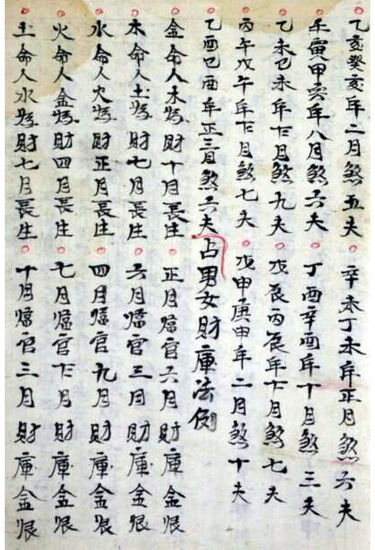 乙亥癸亥年二月煞五夫 辛未丁未年正月煞六夫
壬寅甲寅年八月煞六夫 丁酉辛酉年十月煞三夫
乙未巳未年十二月煞九夫 戊辰丙辰年十二月煞七夫
丙午戊午年十二月煞七夫 戊申庚申年二月煞十夫
乙酉巳酉年正三月煞六夫 占男女財庫法例
金命人木為財十月長庄 正月臨官六月財庫金恨
木命人土為財七月長庄 六月臨官三月財庫金恨
水命人火為財正月長庄 四月臨官九月財庫金恨
火命人金為財四月長庄 七月臨官十二月財庫金恨
土命人水為財七月長庄 十月臨官三月財庫金恨